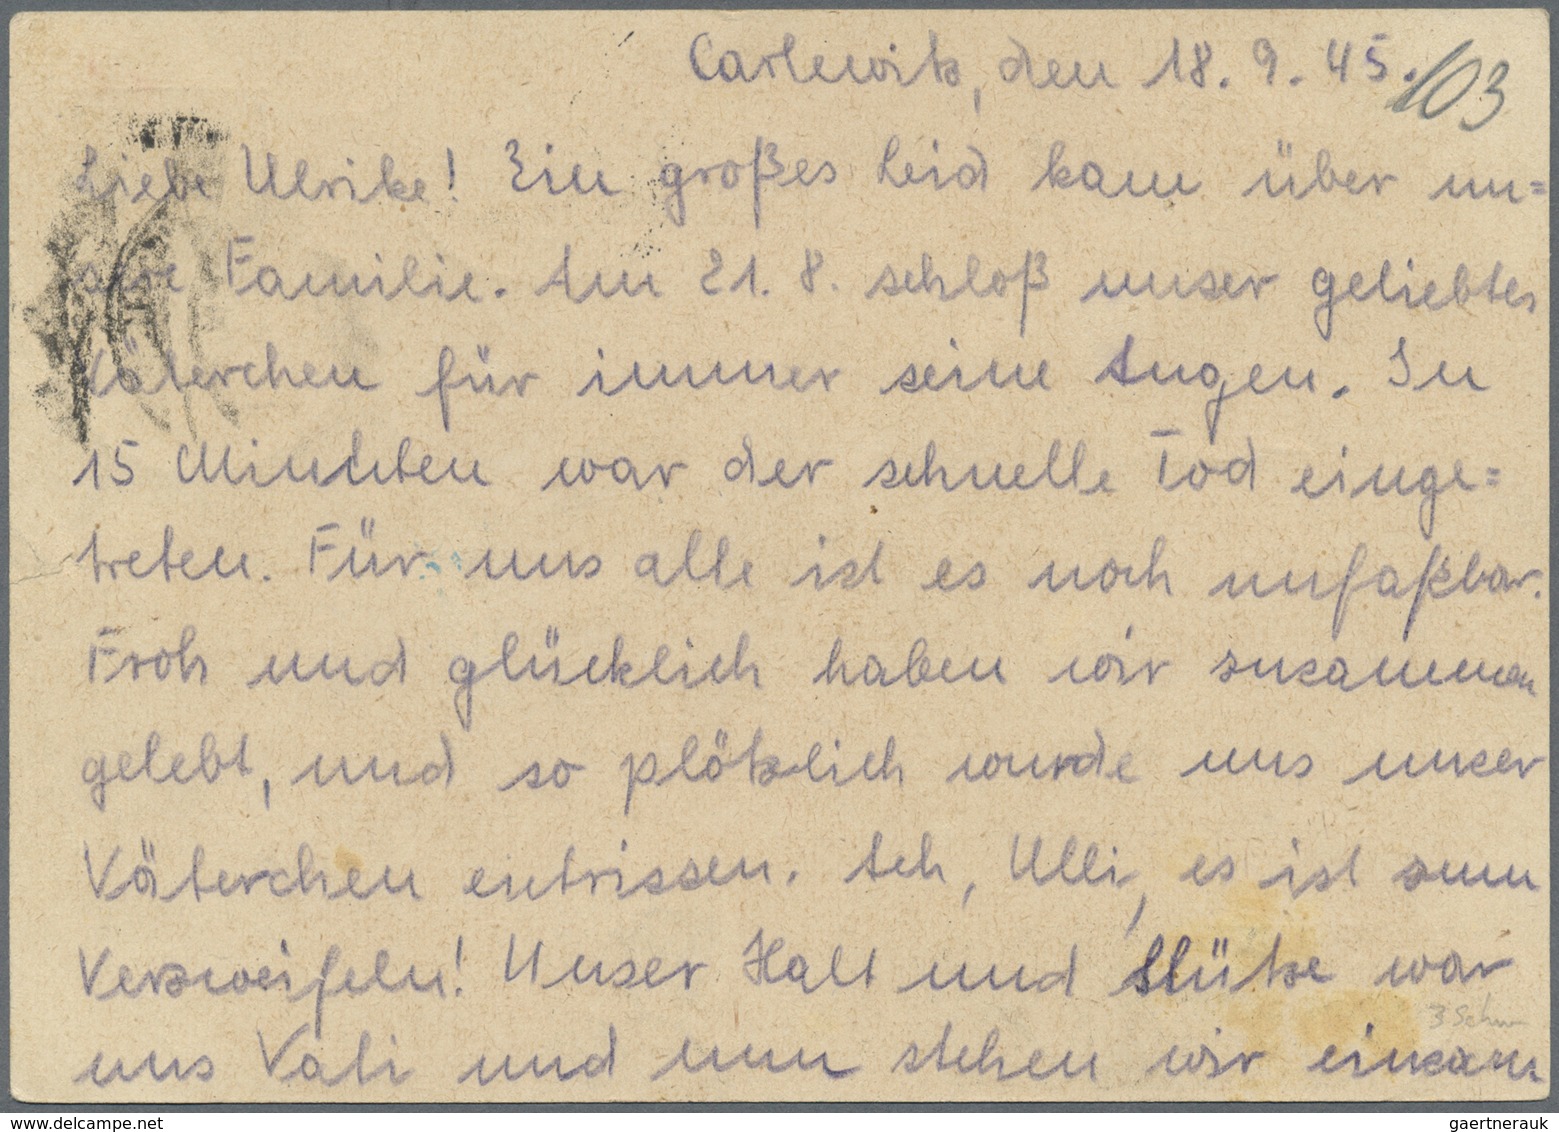 Carlewitz, den 18. 9. 45.
103
Liebe Ulrike! Ein großes Leid kam über un=
sere Familie. Am 21. 8. schloß unser geliebtes
Väterchen für immer seine Augen. In
15 Minuten war der schnelle Tod einge=
treten. Für uns alle ist es noch unfaßbar.
Froh und glücklich haben wir zusammen
gelebt, und so plötzlich wurde uns unser
Väterchen entrissen. Ach, Ulli, es ist zum
Verzweifeln! Unser Halt und Stütze war
uns Vati und nun stehen wir einsam
gaertnerauk